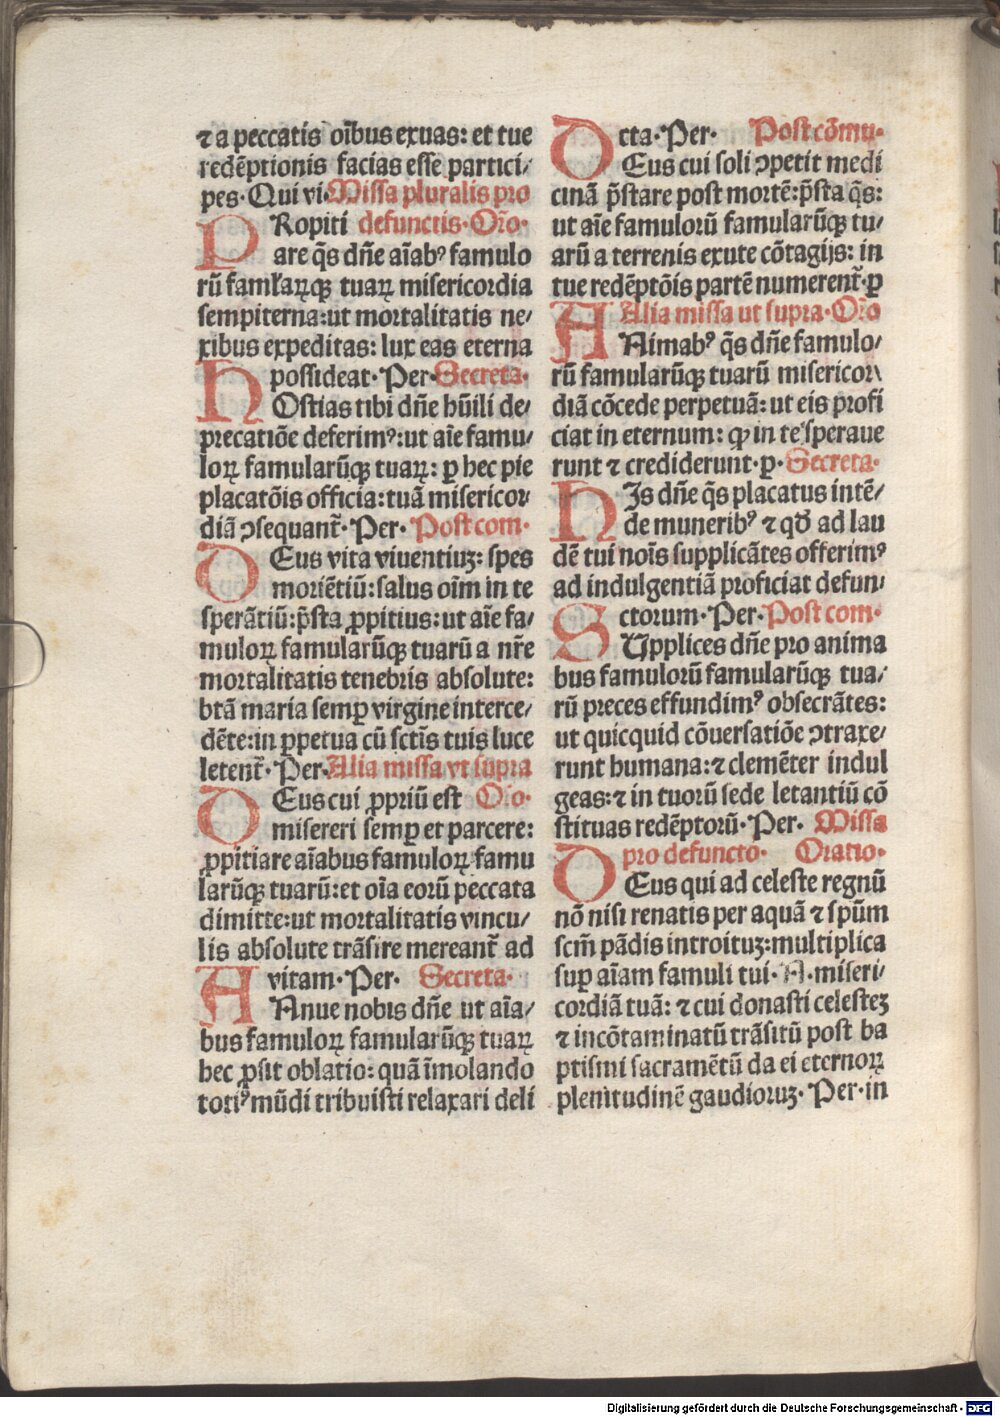 ⁊ a peccatis oĩbus exuas: et tue
redẽptionis facias esse partici/
pes· Qui vi· Missa pluralis pro
PRopiti defunctis· Or̃o·
are q̃s dñe aĩabꝰ famulo
rũ famĺarꝝq̃ tuaꝝ misericordia
sempiterna: ut mortalitatis ne/
xibus expeditas: lux eas eterna
possideat· Per· Secreta·
HOstias tibi dñe hũili de/
precatiõe deferimꝰ: ut aĩe famu/
loꝝ famularũqꝫ tuaꝝ: ꝑ hec pie
placatõis officia: tuã misericor
diã ɔsequant̃· Per· Post com·
DEus vita viventiuꝫ: spes
moriẽtiũ: salus oĩm in te
sperãtiũ: p̃sta ꝓpitius: ut aĩe fa/
muloꝝ famularũqꝫ tuarũ a nr̃e
mortalitatis tenebris absolute:
btã maria semꝑ virgine interce/
dẽte: in ꝑpetua cũ sctĩs tuis luce
letent̃· Per· Alia missa vt supra
DEus cui ꝓpriũ est Or̃o·
misereri semꝑ et parcere:
ꝓpitiare aĩabus famuloꝝ famu
larũqꝫ tuarũ: et oĩa eorũ peccata
dimitte: ut mortalitatis vincu/
lis absolute trãsire mereant̃ ad
vitam· Per· Secreta·
AAnue nobis dñe ut aĩa/
bus famuloꝝ famularũqꝫ tuaꝝ
hec ꝓsit oblatio: quã ĩmolando
totiꝰ mũdi tribuisti relaxari deli
cta· Per· Post cõmu·
DEus cui soli ɔpetit medi
cinã p̃stare post mortẽ: p̃sta q̃s:
ut aĩe famulorũ famularũqꝫ tu/
arũ a terrenis exute cõtagijs: in
tue redẽptõis partẽ numerent̃· ꝑ
Alia missa ut supra· Or̃o
ANimabꝰ q̃s dñe famulo/
rũ famularũqꝫ tuarũ misericor\
diã cõcede perpetuã: ut eis profi
ciat in eternum: ꝙ in te sperave
runt ⁊ crediderunt· ꝑ· Secreta·
HIs dñe q̃s placatus intẽ/
de muneribꝰ ⁊ qđ ad lau
dẽ tui noĩs supplicãtes offerimꝰ
ad indulgentiã proficiat defun/
ctorum· Per· Post com·
SUpplices dñe pro anima
bus famulorũ famularũqꝫ tua/
rũ preces effundimꝰ obsecrãtes:
ut quicquid cõuersatiõe ɔtraxe/
runt humana: ⁊ clemẽter indul
geas: ⁊ in tuorũ sede letantiũ cõ
stituas redẽptorũ· Per· Missa
pro defuncto· Oratio·
DEus qui ad celeste regnũ
nõ nisi renatis per aquã ⁊ spũm
scm̃ pãdis introituꝫ: multiplica
suꝑ aĩam famuli tui· N· miseri/
cordiã tuã: ⁊ cui donasti celesteꝫ
⁊ incõtaminatũ trãsitũ post ba
ptismi sacramẽtũ da ei eternoꝝ
plenitudinẽ gaudioruꝫ· Per· in
Digitalisierung gefördert durch die Deutsche Forschungsgemeinschaft - DFG